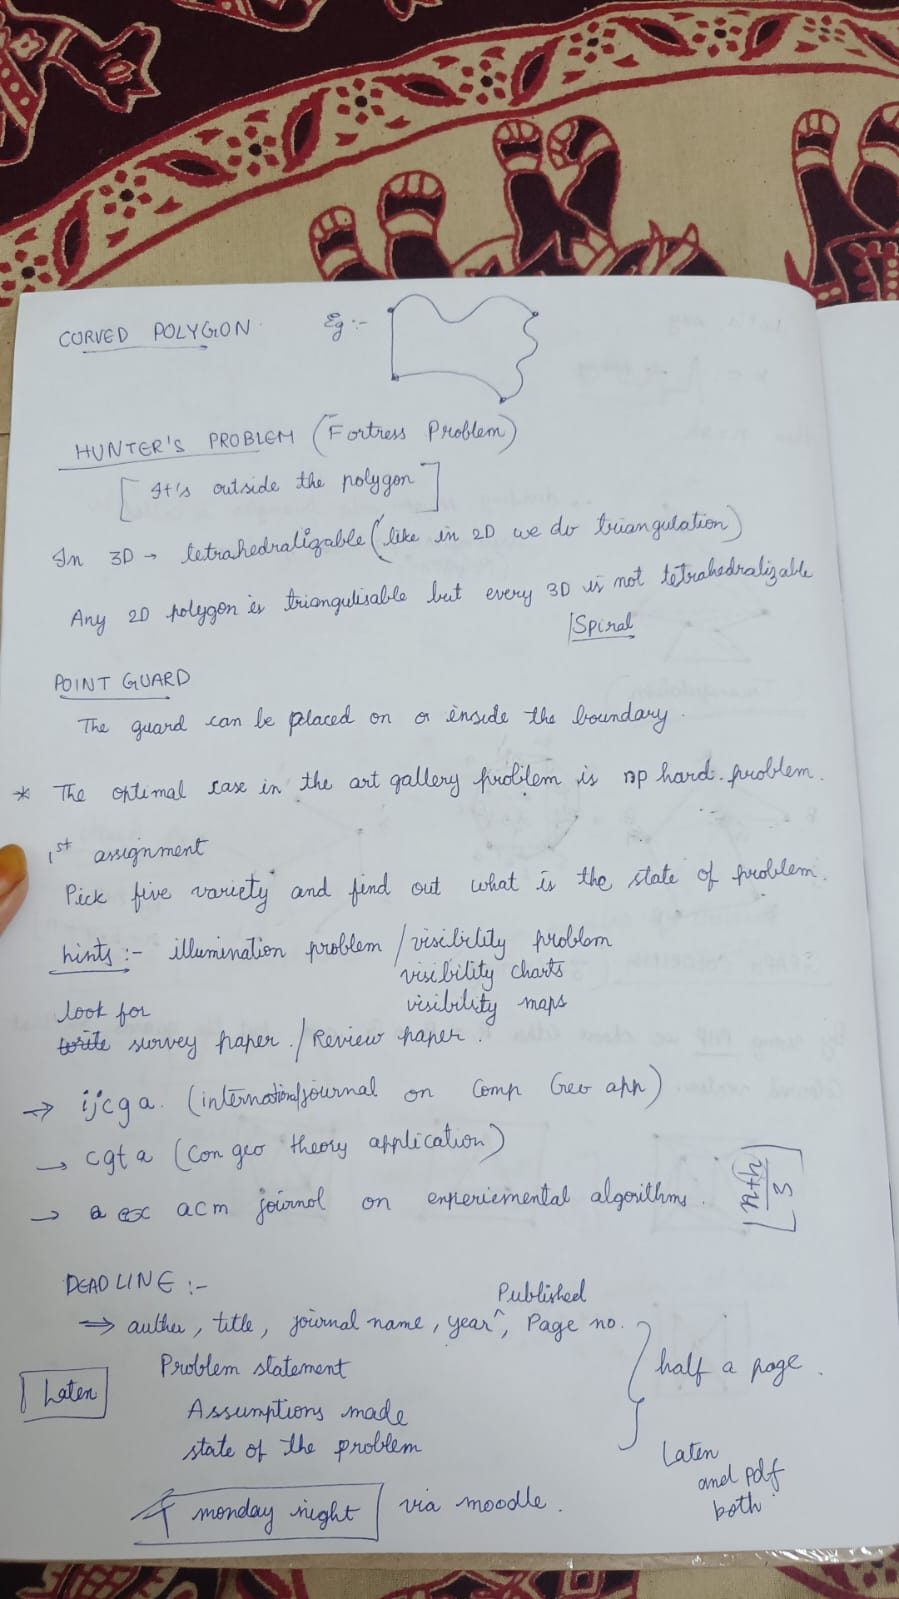 CURVED POLYGON Eg :-
HUNTER'S PROBLEM (Fortress Problem)
[It's outside the polygon]
In 3D → tetrahedralizable (like in 2D we do triangulation)
Any 2D polygon is triangulisable but every 3D is not tetrahedralizable
Spiral
POINT GUARD
The guard can be placed on or inside the boundary.
* The optimal case in the art gallery problem is np hard problem.
1st assignment
Pick five variety and find out what is the state of problem.
hints :- illumination problem / visibility problem
visibility charts
visibility maps
look for
write survey paper. / Review paper.
→ ijcga. (international journal on Comp Geo app)
→ cgta (Con geo theory application)
→ acm journal on experiemental algorithms.
⌊n+h/3⌋
DEADLINE :-
Published
⇒ author, title, journal name, year^, Page no.
Problem statement
half a page.
Latex
Assumptions made
state of the problem
Latex
and pdf
both
monday night via moodle.